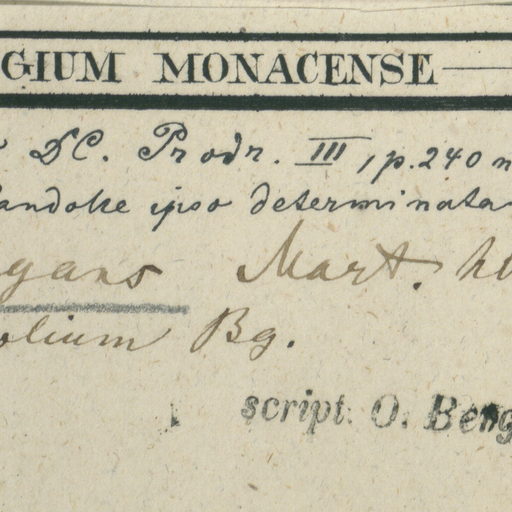 GIUM MONACENSE
DC. Prodr. III, p. 240 n
andolle ipso determinata
gans Mart. h
olium Bg.
script. O. Beng